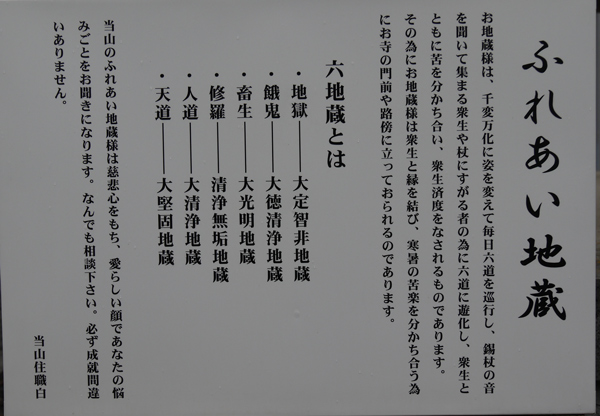 ふれあい地蔵
お地蔵様は、千変万化に姿を変えて毎日六道を巡行し、錫杖の音
を聞いて集まる衆生や杖にすがる者の為に六道に遊化し、衆生と
ともに苦を分かち合い、衆生済度をなされるものであります。
その為にお地蔵様は衆生と縁を結び、寒暑の苦楽を分かち合う為
にお寺の門前や路傍に立っておられるのであります。
六地蔵とは
・地獄――大定智非地蔵
・餓鬼――大徳清浄地蔵
・畜生――大光明地蔵
・修羅――清浄無垢地蔵
・人道――大清浄地蔵
・天道――大堅固地蔵
当山のふれあい地蔵様は慈悲心をもち、愛らしい顔であなたの悩
みごとをお聞きになります。なんでも相談下さい。必ず成就間違
いありません。
当山住職白